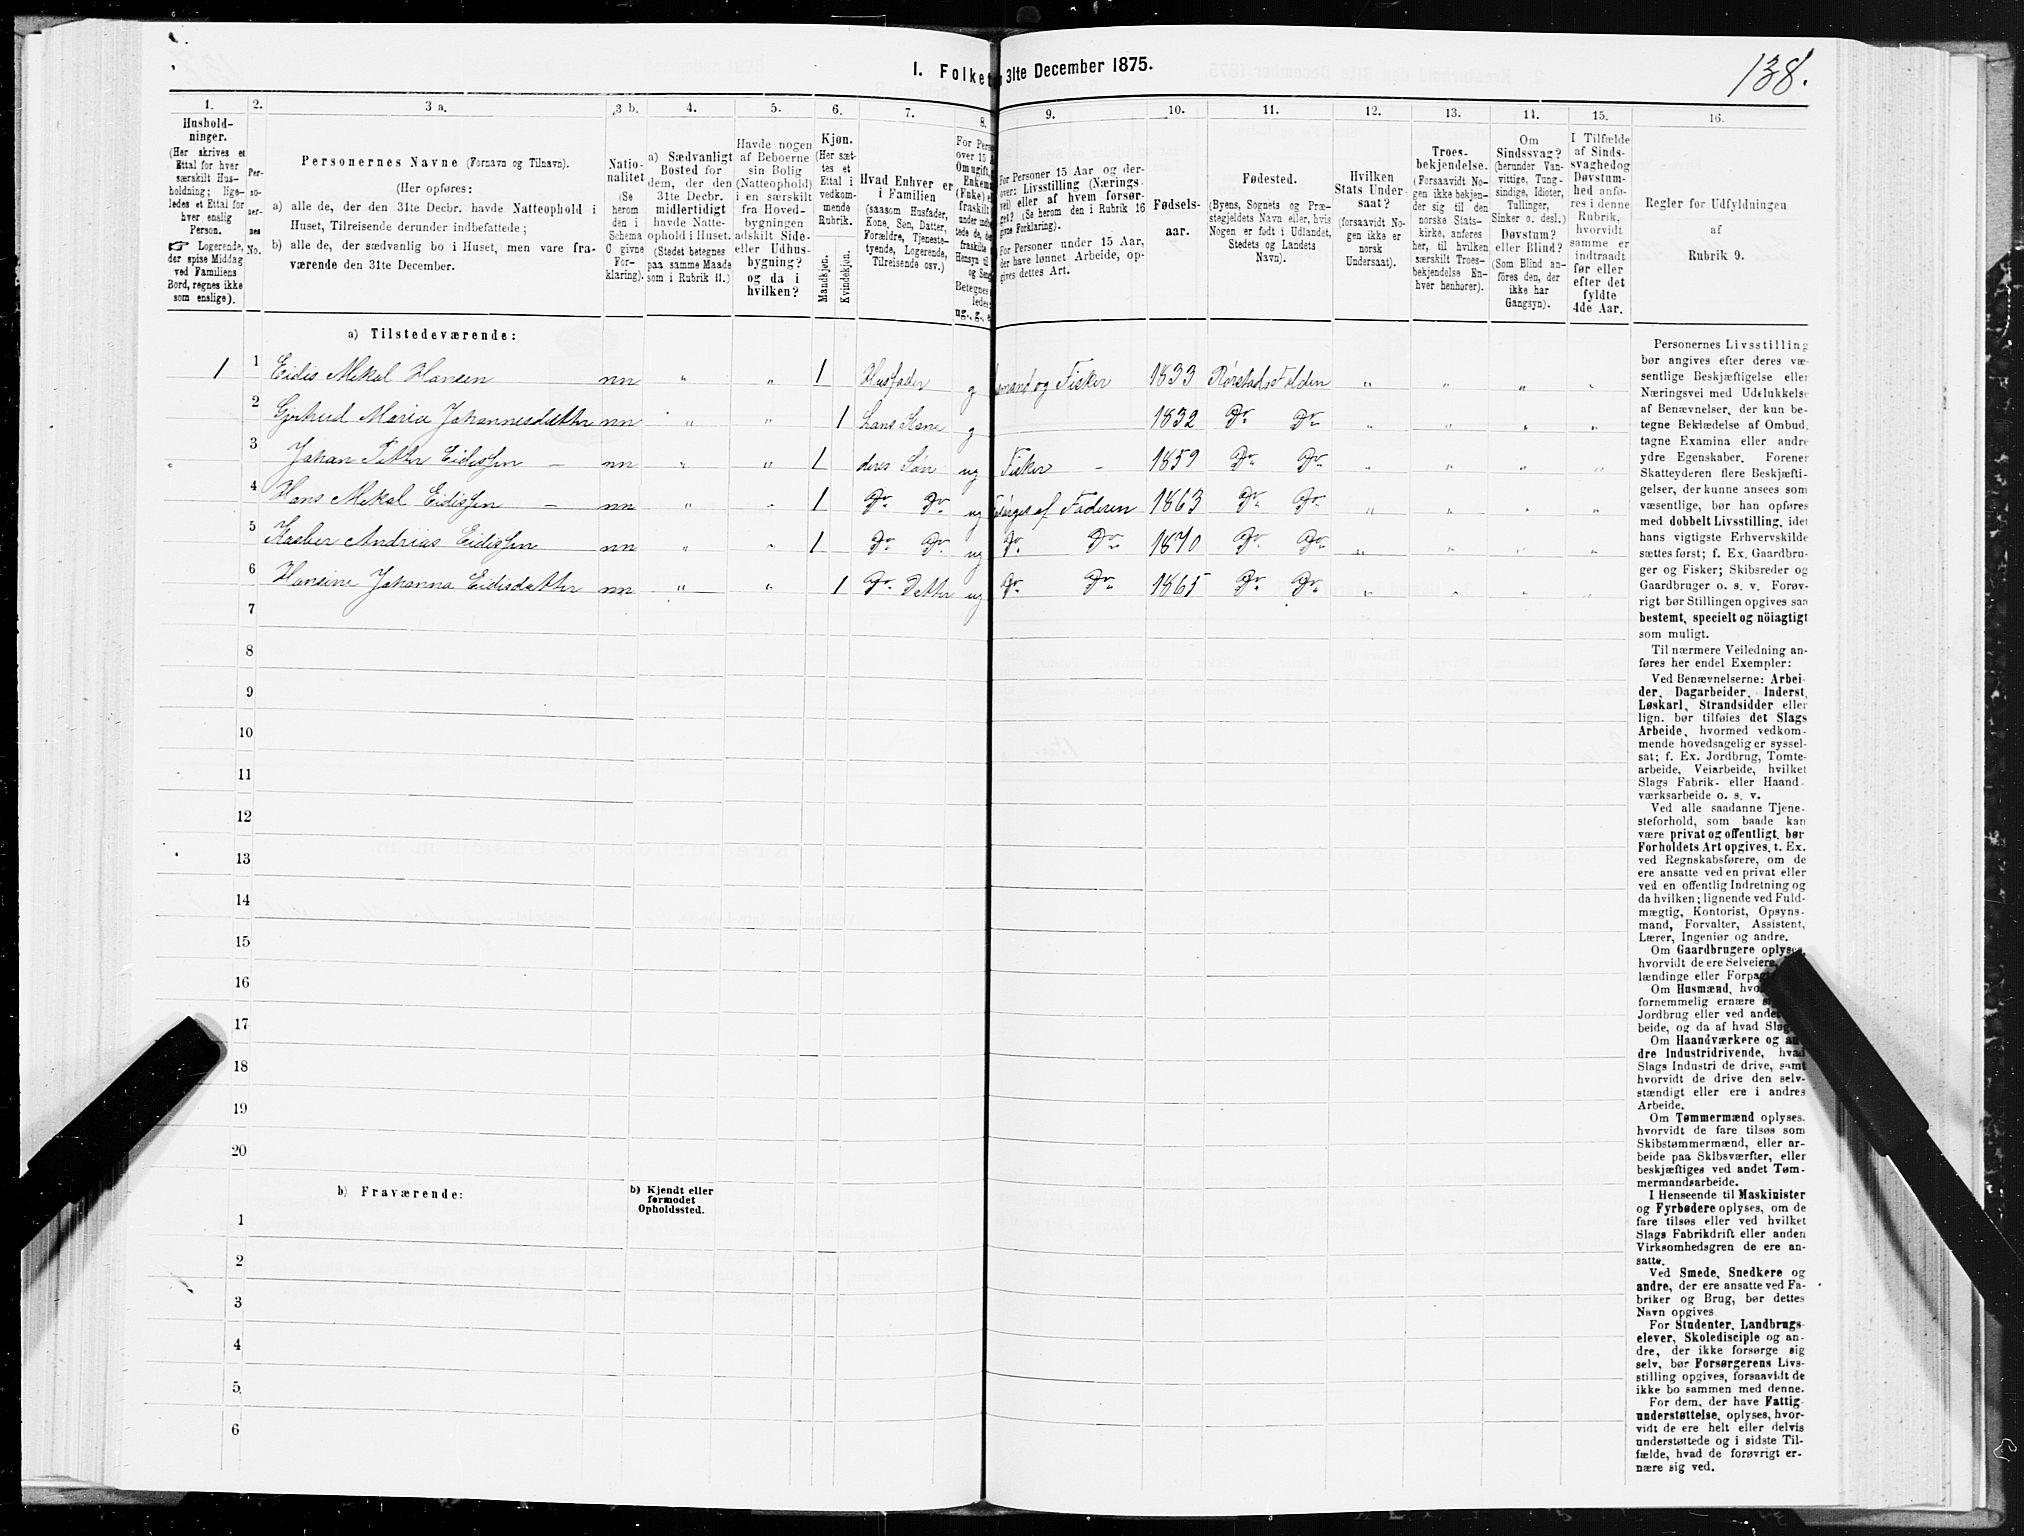 138.
I. Folket
31te December 1875.
1. 2. 3 a. 3 b. 4. 5. 6. 7. 8. 9. 10. 11. 12. 13. 14. 15. 16.
Husholdninger.
(Her skrives et
Ettal for hver
særskilt Husholdning;
ligeledes et Ettal for
hver enslig
Person.
☞ Logerende,
der spise Middag
ved Familiens
Bord, regnes ikke
som enslige).
Personernes
No.
Personernes Navne (Fornavn og Tilnavn).
(Her opføres:
a) alle de, der den 31te Decbr. havde Natteophold i
Huset, Tilreisende derunder indbefattede;
b) alle de, der sædvanlig bo i Huset, men vare fraværende
den 31te December.
Nationalitet
(Se
herom
den i
Schema
C givne
Forklaring).
a) Sædvanligt
Bosted for
dem, der den
31te Decbr.
midlertidigt
havde Natteophold
i Huset.
(Stedet betegnes
paa samme Maade
som i Rubrik 11.)
Havde nogen
af Beboerne
sin Bolig
(Natteophold)
i en særskilt
fra Hovedbygningen
adskilt Side-
eller Udhusbygning?
og da i
hvilken?
Kjøn.
(Her sættes
et
Ettal i
vedkommende
Rubrik.
Mandkjøn.
Kvindekjøn.
Hvad Enhver er
i Familien
(saasom Husfader,
Kone, Søn, Datter,
Forældre, Tjenestetyende,
Logerende,
Tilreisende osv.)
For Personer 15 Aar og derover:
Livsstilling (Næringsvei)
eller af hvem forsørget?
(Se herom den i Rubrik 16
givne Forklaring).
For Personer under 15 Aar,
der have lønnet Arbeide, opgives
dettes Art.
Fødselsaar.
Fødested.
(Byens, Sognets og Præstegjeldets
Navn eller, hvis
Nogen er født i Udlandet,
Stedets og Landets
Navn).
Hvilken
Stats Undersaat?
(forsaavidt Nogen
ikke er
norsk
Undersaat).
Troesbekjendelse.
(Forsaavidt Nogen
ikke bekjender
sig til den
norske Statskirke,
anføres
her, til hvilken
særskilt Troesbekjendelse
Enhver
henhører).
Om
Sindssvag?
(herunder Vanvittige,
Tungsindige,
Idioter,
Tullinger,
Sinker o. desl.)
Døvstum?
eller Blind?
(Som Blind anføres
den, der
ikke har
Gangsyn).
I Tilfælde
af Sindssvaghed
og
Døvstumhed
anføres
i denne
Rubrik,
hvorvidt
samme er
indtraadt
før eller
efter det
fyldte
4de Aar.
Regler for Udfyldningen
af
Rubrik 9.
a) Tilstedeværende:
1 1 Eidis Mekal Hansen nn " " 1 Husfader g mand og Fisker 1833 Rørstad Folden " " " "
2 Maria Johannesdatter nn " " 1 hans Kone g 1832 Do Do " " " "
3 Johan Petter Eidissen nn " " 1 deres Søn ug Fisker 1859 Do Do " " " "
4 Hans Mekal Eidissen nn " " 1 Do Do ug af Faderen 1863 Do Do " " " "
5 Kasber Andrias Eidissen nn " " 1 Do Do ug Do Do 1870 Do Do " " " "
6 Hansine Johanna Eidisdatter nn " " 1 Do Datter ug Do Do 1865 Do Do " " " "
7
8
9
10
11
12
13
14
15
16
17
18
19
20
b) Fraværende:
b) Kjendt eller
formodet
Opholdssted.
1
2
3
4
5
6
Personernes Livsstilling
bør angives efter deres væsentlige
Beskjæftigelse eller
Næringsvei med Udelukkelse
af Benævnelser, der kun betegne
Beklædelse af Ombud,
tagne Examina eller andre
ydre Egenskaber. Forener
Skatteyderen flere Beskjæftigelser,
der kunne ansees som
væsentlige, bør han opføres
med dobbelt Livsstilling, idet
hans vigtigste Erhvervskilde
sættes først; f. Ex. Gaardbruger
og Fisker; Skibsreder og
Gaardbruger o. s. v. Forøvrigt
bør Stillingen opgives saa
bestemt, specielt og nöiagtigt
som muligt.
Til nærmere Veiledning anføres
her endel Exempler:
Ved Benævnelserne: Arbeider,
Dagarbeider, Inderst,
Løskarl, Strandsidder eller
lign. bør tilføies det Slags
Arbeide, hvormed vedkommende
hovedsagelig er sysselsat;
f. Ex. Jordbrug, Tomtearbeide,
Veiarbeide, hvilket
Slags Fabrik- eller Haandværksarbeide
o. s. v.
Ved alle saadanne Tjenesteforhold,
som baade kan
være privat og offentligt, bør
Forholdets Art opgives, t. Ex.
ved Regnskabsførere, om de
ere ansatte ved en privat eller
ved en offentlig Indretning og
da hvilken; lignende ved Fuldmægtig,
Kontorist, Opsynsmand,
Forvalter, Assistent,
Lærer, Ingeniør og andre.
Om Gaardbrugere oplyses,
hvorvidt de ere Selveiere,
lændinge eller
Om Husmænd,
fornemmelig ernære
Jordbrug eller ved
beide, og da af hvad
Om Haandværkere og andre
Industridrivende, hvad
Slags Industri de drive, samt
hvorvidt de drive den selvstændigt
eller ere i andres
Arbeide.
Om Tømmermænd oplyses,
hvorvidt de fare tilsøs som
Skibstømmermænd, eller arbeide
paa Skibsværfter, eller
beskjæftiges ved andet Tømmermandsarbeide.
I Henseende til Maskinister
og Fyrbødere oplyses, om de
fare tilsøs eller ved hvilket
Slags Fabrikdrift eller anden
Virksomhedsgren de ere ansatte.
Ved Smede, Snedkere og
andre, der ere ansatte ved Fabriker
og Brug, bør dettes
Navn opgives
For Studenter, Landbrugselever,
Skoledisciple og andre,
der ikke forsørge sig
selv, bør Forsørgerens Livsstilling
opgives, forsaavidt de
ikke bo sammen med denne.
For dem, der have Fattigunderstøttelse,
oplyses, hvorvidt
de ere helt eller delvis
understøttede og i sidste Tilfælde,
hvad de forøvrigt ernære
sig ved.